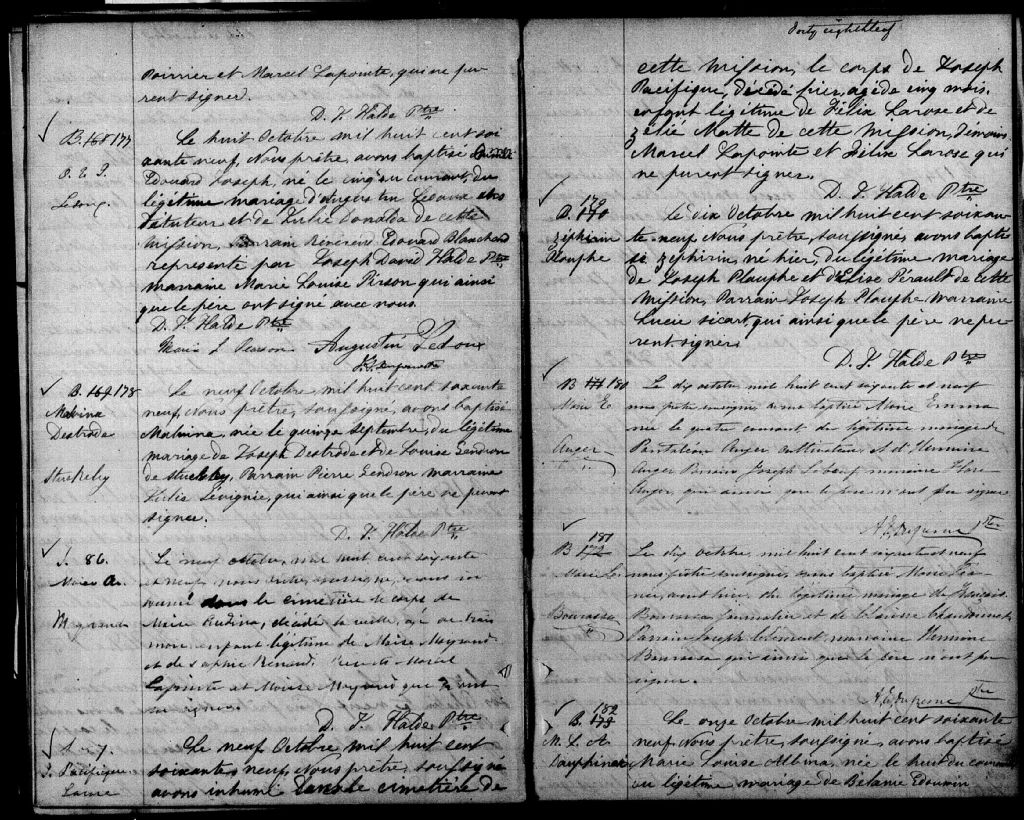 Poirrier et Marcel Lapointe, qui ne pu-
rent signer.
D. J. Halde Ptre
B. 168 177
O. E. J.
Ledoux
Le huit Octobre mil huit cent soi
xante neuf, Nous prêtre, avons baptisé
Edouard Joseph, né le cinq du courant, du
légitime mariage d'Augustin Ledoux ins
tituteur et de Julie de cette
mission, Parrain Révérend Edouard Blanchard
représenté par Joseph David Halde Ptre
marraine Marie Louise Pirson qui ainsi
que le père ont signé avec nous.
D. J. Halde Ptre
Marie L Pearson Augustin Ledoux
B. 169 178
Malvina
Destrode
Stuckeley
Le neuf Octobre mil huit cent soixante
neuf, Nous prêtre, soussigné, avons baptisé
Malvina, née le quinze septembre, du légitime
mariage de Joseph Destrode et de Louise Gendron
de Stuckeley, Parrain Pierre Gendron marraine
Julie Lévignie, qui ainsi que le père ne peuvent
signer.
D. J. Halde Ptre
S. 86.
Le neuf Octobre, mil huit cent soixante
et neuf, nous prêtre soussigné, avons in
humé dans le cimetière le corps de
Marie décédé la veille, agé de trois
mois enfant légitime de Moise Maynard
et de Sophie Renaud. Marcel
Lapointe et Moise Maynard que n'ont
su signer.
D. J. Halde Ptre
S. 87.
J. Pacifique
Larose
Le neuf Octobre mil huit cent
soixante neuf, Nous prêtre, soussigné
avons inhumé dans le cimetière de
Forty eighth leaf
cette mission, le corps de Joseph
Pacifique, décédé hier, agé de cinq mois,
enfant légitime de Félix Larose et de
Zélie Matte de cette mission, Témoins
Marcel Lapointe et Félix Larose qui
ne purent signer.
D. J. Halde Ptre
179
B. 170
Zéphirin
Plouphe
Le dix Octobre mil huit cent soixan
te neuf, Nous prêtre, soussigné, avons bapti
sé Zéphirin, né hier, du légitime mariage
de Joseph Plouphe et d'Elise Pérault de cette
mission, Parrain Joseph Plouphe marraine
Lucie Sicart, qui ainsi que le père ne pu-
rent signer.
D. J. Halde Ptre
B 171 180
Marie E
Anger
Le dix octobre mil huit cent soixante et neuf
nous prêtre soussigné, avons baptisé Marie Emma
née le quatre courant du légitime mariage de
Pantaléon Anger cultivateur, et d'Hermine
Anger Parrain Joseph Leboeuf marraine Flore
Anger, qui ainsi que le père n'ont su signer
A. E. Dufresne Ptre
181
B 172
Marie Lé
Bourassa
Le dix octobre, mil huit cent soixante et neuf
nous prêtre soussigné, avons baptisé Marie Léa-
née, avant hier, du légitime mariage de François
Bourassa journalier et de
Parrain Joseph Clément marraine Hermine
Bourassa qui ainsi que le père n'ont pu
signer.
A. E. Dufresne Ptre
182
B. 173
M. L. A.
Dauphinais
Le onze Octobre mil huit cent soixante
neuf, Nous prêtre, soussigné, avons baptisé
Marie Louise Albina, née le huit du courant
du légitime mariage de Bélanie Edouvin